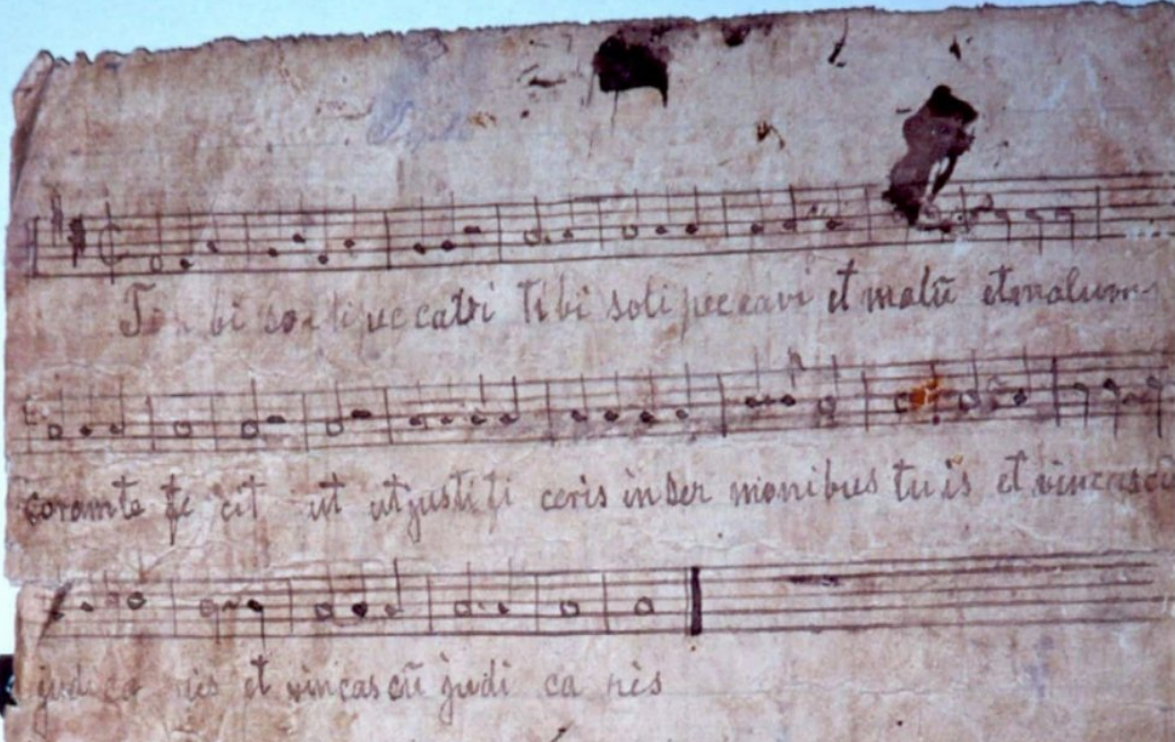 Ti bi so li peccavi tibi soli peccavi et malũ et malum
coramte fe cit ut utjustifi ceris inser monibus tuis et vincascũ
judica ris et vincascũ judi ca ris